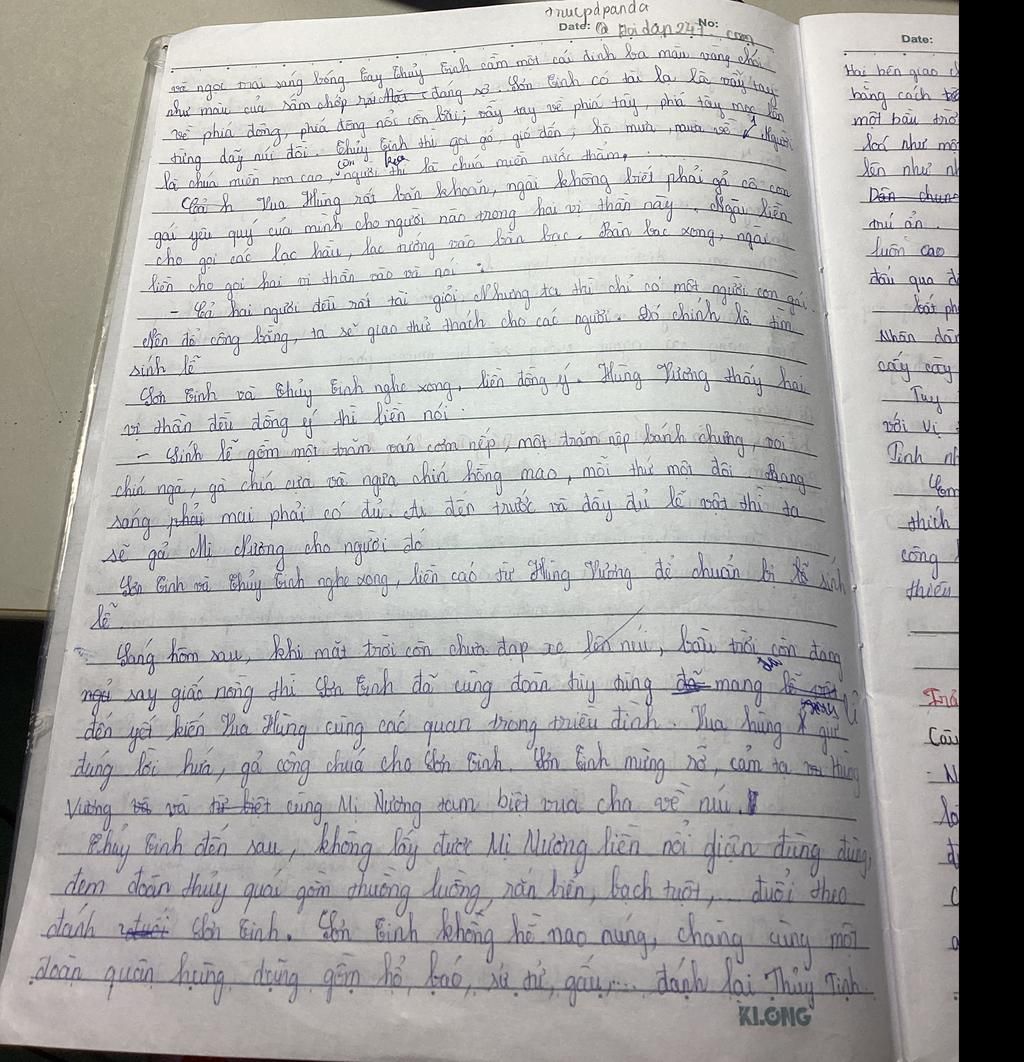 trucpdpanda
Date: @ Hoidap247 No:
com
và ngọc trai sáng bóng. Tay Thủy Tinh cầm một cái đinh ba màu vàng chói
như màu của sấm chớp đáng sợ. Sơn Tinh có tài lạ là vẫy tay
về phía đông, phía đông nổi cồn bãi; vẫy tay về phía tây, phía tây mọc lên
từng dãy núi đồi. Thủy Tinh thì gọi gió, gió đến; hô mưa, mưa về. 1 Người
là chúa miền non cao, còn người kia thì là chúa miền nước thẳm.
Vua Hùng rất băn khoăn, ngài không biết phải gả cô con
gái yêu quý của mình cho người nào trong hai vị thần này. Ngài liền
cho gọi các lạc hầu, lạc tướng vào bàn bạc. Bàn bạc xong, ngài
liền cho gọi hai vị thần vào và nói:
- Cả hai người đều rất tài giỏi. Nhưng ta thì chỉ có một người con gái.
Nên để công bằng, ta sẽ giao thử thách cho các người. Đó chính là tìm
sính lễ
Sơn Tinh và Thủy Tinh nghe xong, liền đồng ý. Hùng Vương thấy hai
vị thần đều đồng ý thì liền nói:
- Sính lễ gồm một trăm ván cơm nếp, một trăm nệp bánh chưng, voi
chín ngà, gà chín cựa và ngựa chín hồng mao, mỗi thứ một đôi. Trong
sáng phải mai phải có đủ. Ai đến trước và đầy đủ lễ vật thì ta
sẽ gả Mị Nương cho người đó.
Sơn Tinh và Thủy Tinh nghe xong, liền cáo từ Hùng Vương để chuẩn bị lễ sính
lễ.
Sáng hôm sau, khi mặt trời còn chưa đạp xe lên núi, bầu trời còn đang
ngủ say giấc nồng thì Sơn Tinh đã cùng đoàn tùy tùng đã mang
đến yết kiến Vua Hùng cùng các quan trong triều đình. Vua hùng giữ
đúng lời hứa, gả công chúa cho Sơn Tinh. Sơn Tinh mừng rỡ, cảm tạ Hùng
Vương và và từ biệt cùng Mị Nương tạm biệt vua cha về núi.
Thủy Tinh đến sau, không lấy được Mị Nương liền nổi giận đùng đùng,
đem đoàn thủy quái gồm thuồng luồng, rắn biển, bạch tuột,... đuổi theo
đánh đuổi Sơn Tinh. Sơn Tinh không hề nao núng, chàng cùng một
đoàn quân hùng dũng gồm hổ, báo, sư tử, gấu,... đánh lại Thủy Tinh.
KLONG
Date:
Hai bên giao
bằng cách
một bầu trờ
loá như mộ
lên như nh
Dân chung
mù án.
luôn cao
đấu qua
bất ph
Nhân dân
cấy cày
Tuy
với vị
Tinh nh
thích
công
thiếu
Câu